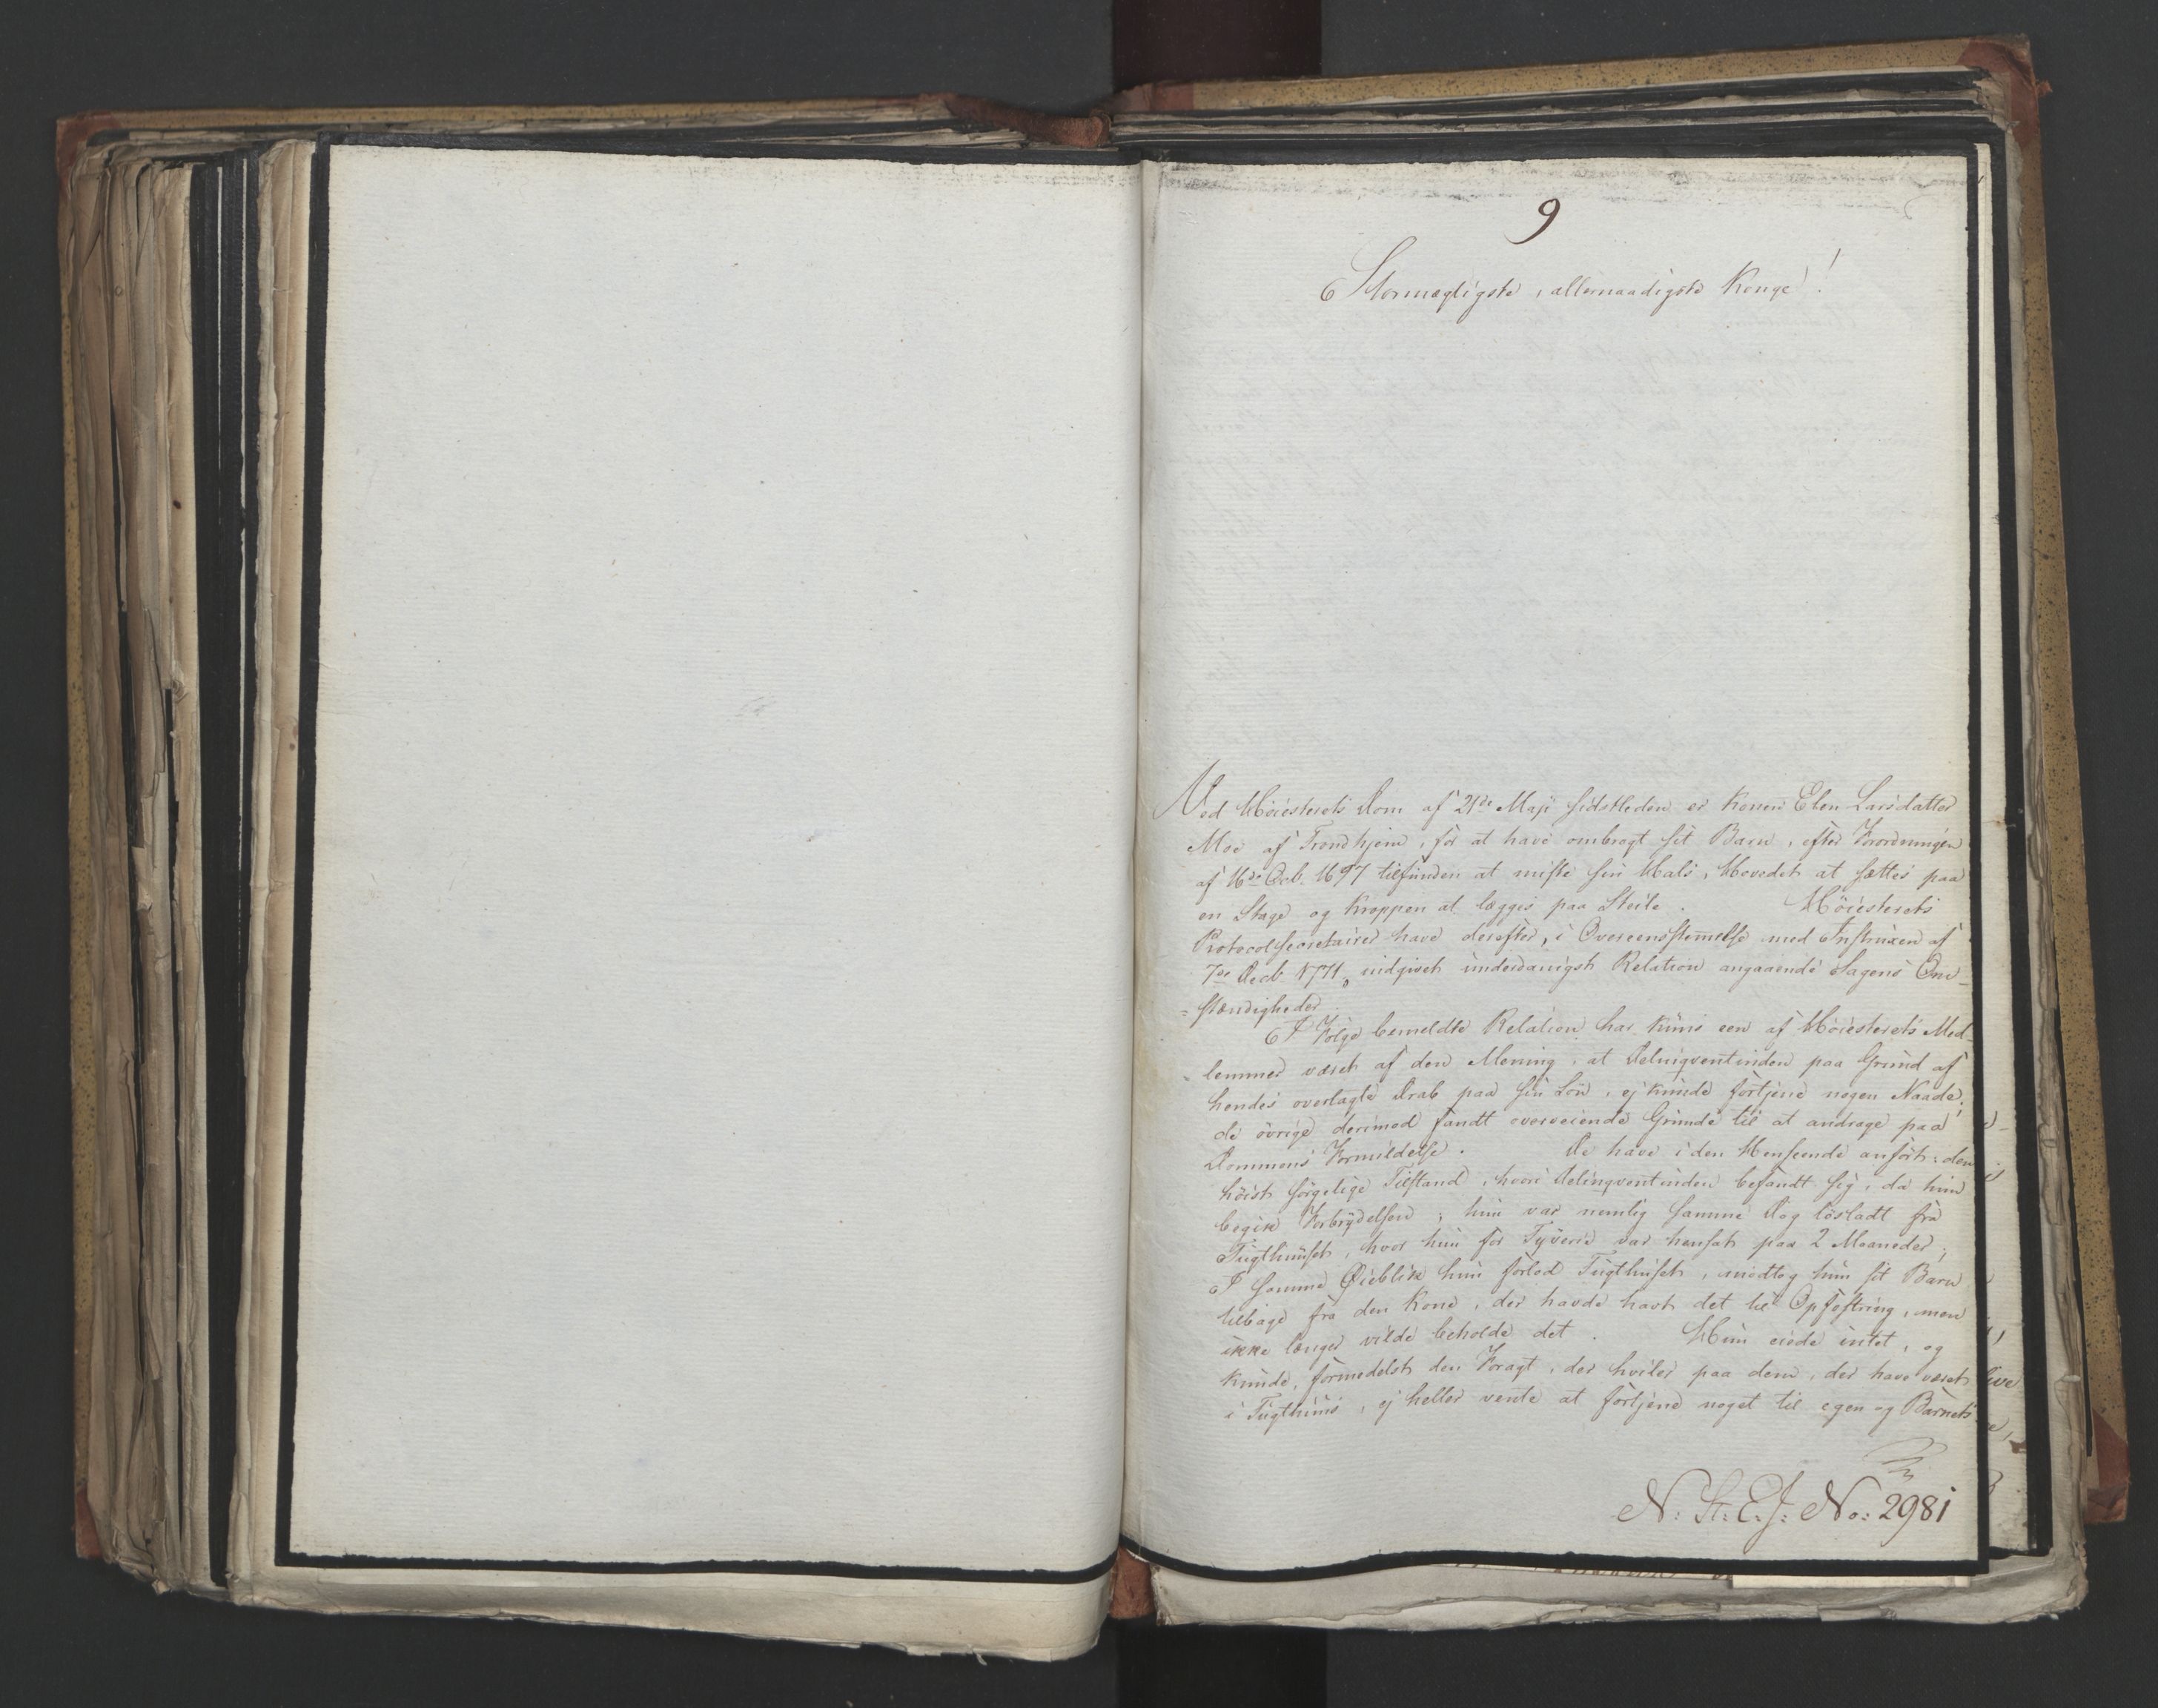 9
Stormægtigste, allernaadigste Konge!
Ved Höiesterets Dom af 21de Maji sidstleden er Konen Elen Larsdatter
Moe af Trondhjem, for at have ombragt sit Barn, efter Forordningen
af 16de Octb. 1697 tilfunden at miste sin Hals, Hovedet at sættes paa
en Stage og Kroppen at lægges paa Steile. Höiesterets
Protocolsecretairer have derefter, i Overeensstemmelse med Instruxen af
7de Decb. 1771, udgivet underdanigst Relation angaaende Sagens Om-
=stændigheder.
I Følge bemeldte Relation har kuns een af Höiesterets Med-
lemmer været af den Mening, at Delinqventinden paa Grund af
hendes overlagte Drab paa sin Sön, ej kunde fortjene nogen Naade;
de övrige derimod fandt overveiende Grunde til at andrage paa
Dommens Formildelse. De have i den Henseende anfört: den
höist sörgelige Tilstand, hvori Delinqventinden befandt sig, da hun
begik Forbrydelsen; hun var nemlig samme Dag lösladt fra
Tugthuuset, hvor hun for Tyverie var hensat paa 2 Maaneder;
I samme Øieblik hun forlod Tugthuset, modtog hun sit Barn
tilbage fra den Kone, der havde havt det til Opfostring, men
ikke længer vilde beholde det. Hun eiede intet, og
kunde, formedelst den Foragt, der hviler paa dem, der have været
i Tugthuus, ej heller vente at fortjene noget til egen og Barnets
N: St: E: J: No: 2981